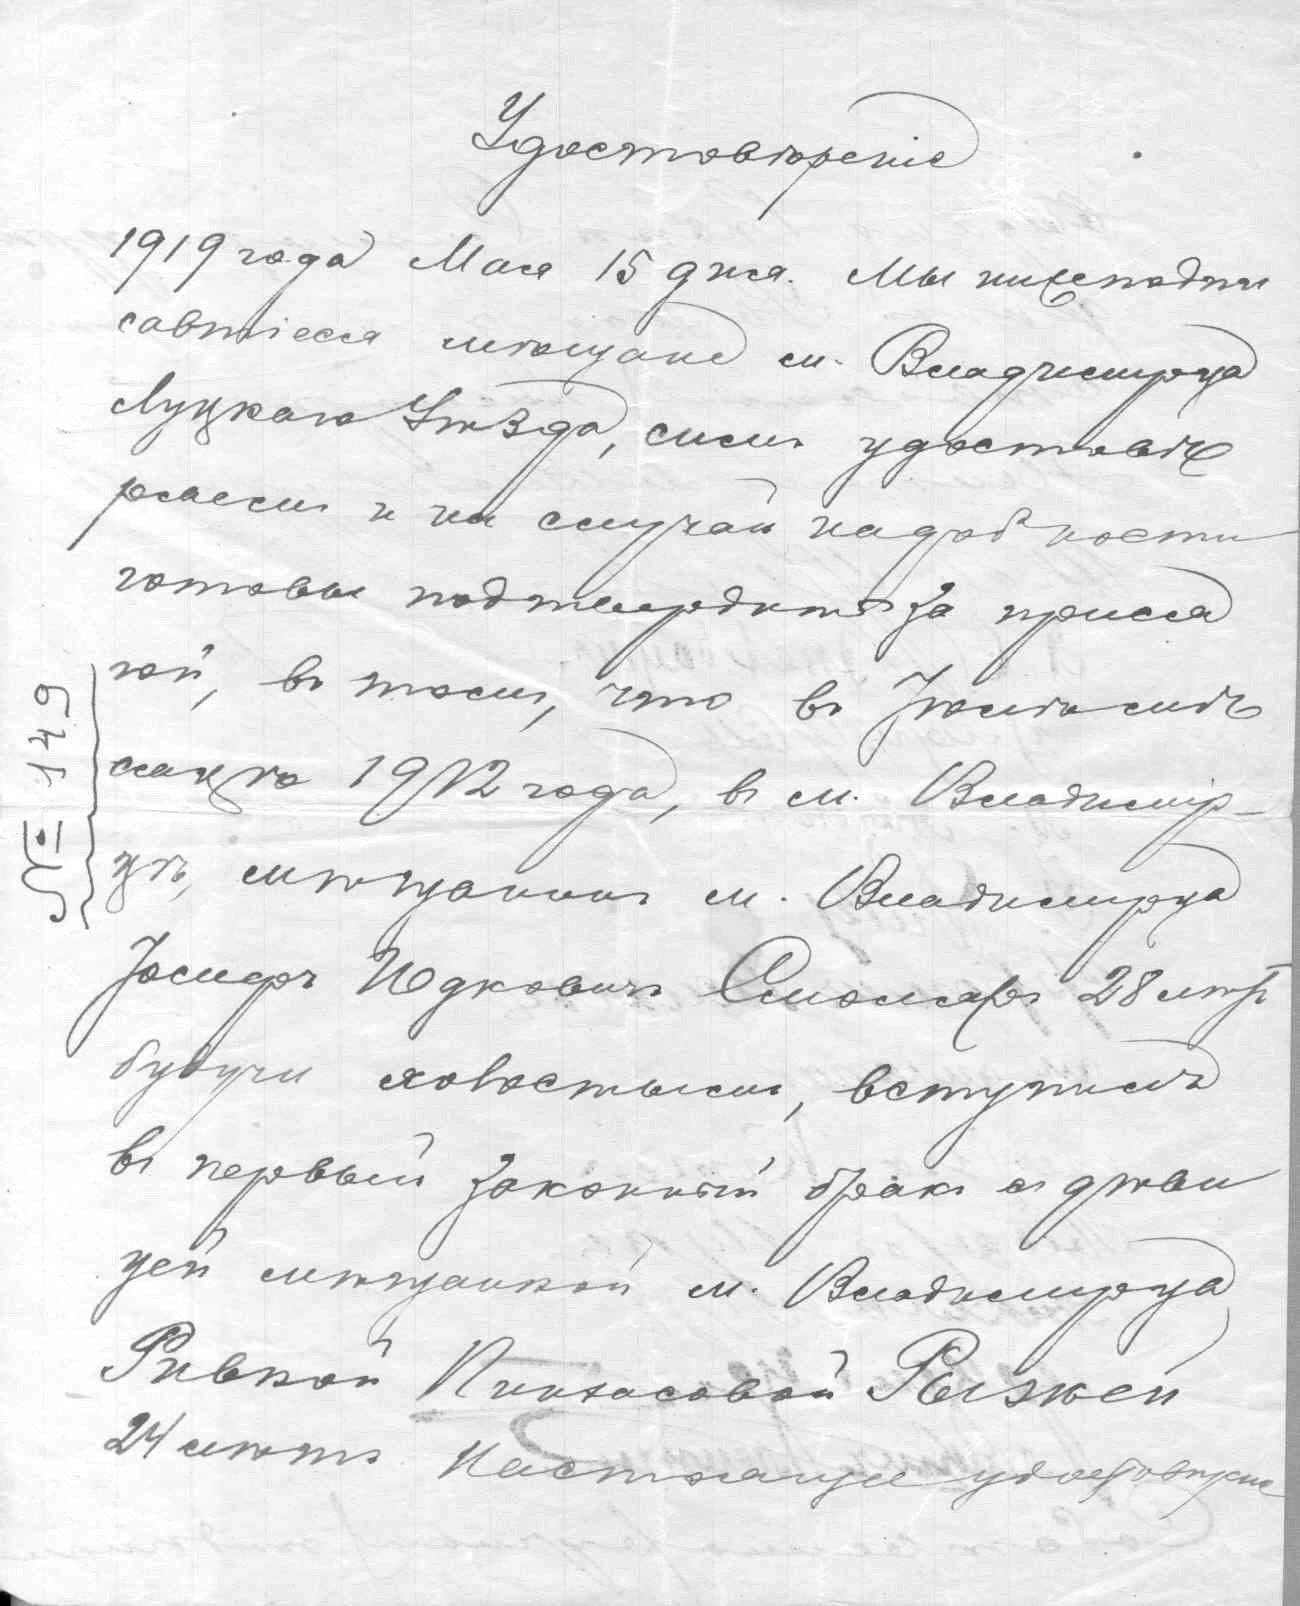 Удостовѣреніе
1919 года Мая 15 дня. Мы нижеподпи
савшіеся мѣщане м. Владимирца
Луцкаго Уѣзда, симъ удостовѣ
ряемъ и на случай надобности
готовы подтвердить за прися
гой, въ томъ, что въ
мѣсяцѣ 1912 года, въ м. Владимир-
цѣ, мѣщанинъ м. Владимирца
Іосифъ Юдковичъ Смоляръ 28 лѣтъ
будучи холостымъ, вступилъ
въ первый законный бракъ съ дѣви
цей мѣщанкой м. Владимирца
Ривкой Пинхасовой Рыжей
24 лѣтъ. Настоящее удостовѣреніе
№ 149